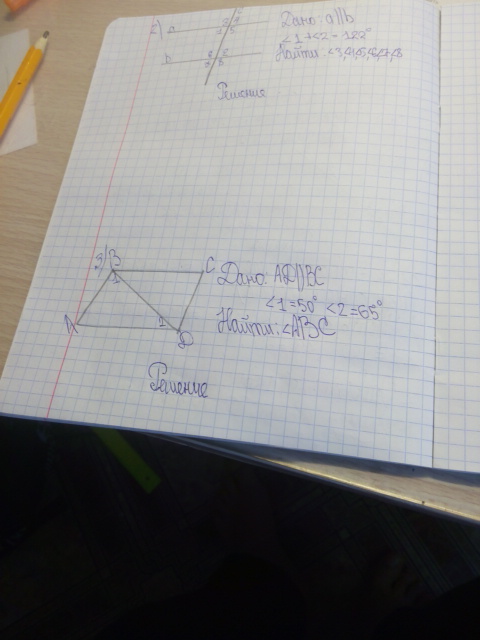 Дано: a||b
<1+<2=122°
Найти: <3,4,5,6,7,8
Решение
3)
B
C
1
A
1
D
Дано: AD||BC
<1=50° <2=65°
Найти: <ABC
Решение